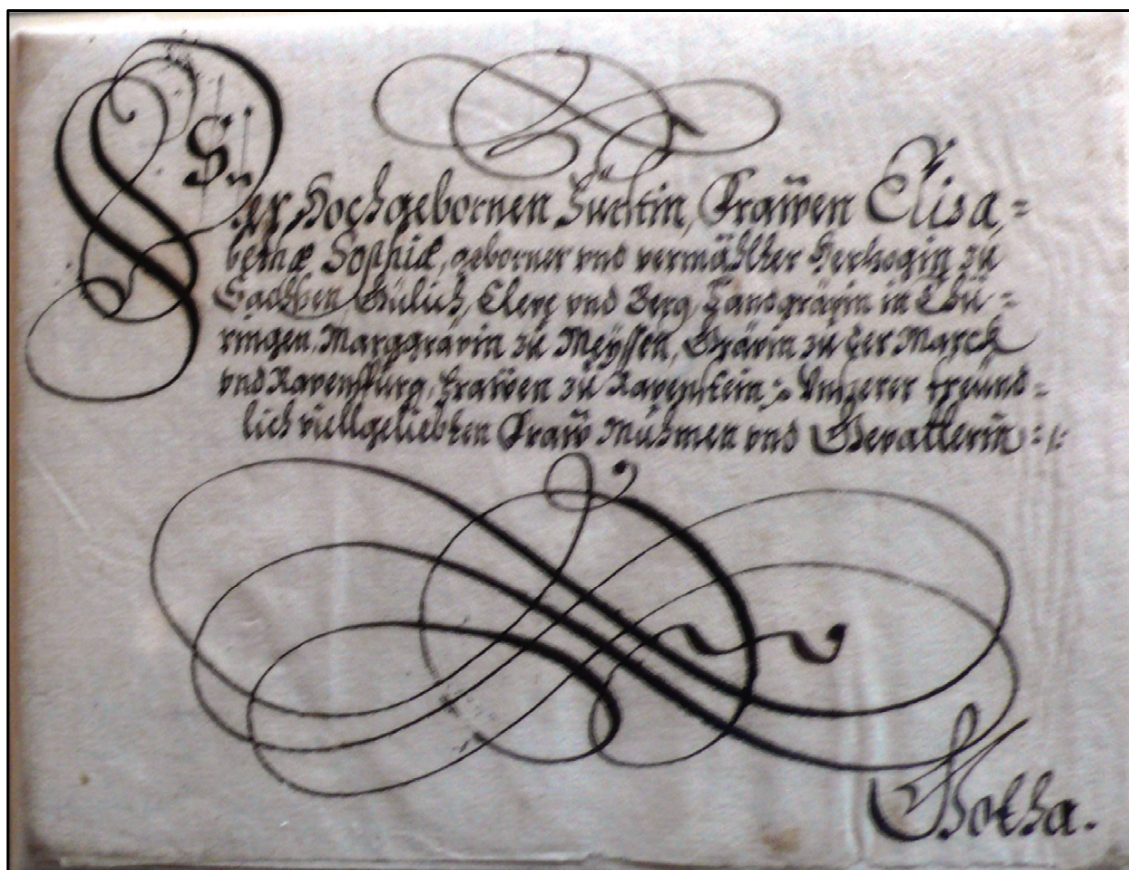 Der Hochgebornen Fürstin, Frawen Elisa,=
bethæ Sophiæ, geborner vnd vermählter Hertzogin zu
Sachßen, Gülich, Cleve vnd Berg, Landgrävin in Thü-=
ringen, Marggrävin zu Meyssen, Grävin zu der Marck
vnd Ravenspürg, Frawen zu Ravenstein; Vnserer freünd=
lich viellgeliebten Fraw Muhmen vnd Gevatterin
Gotha.